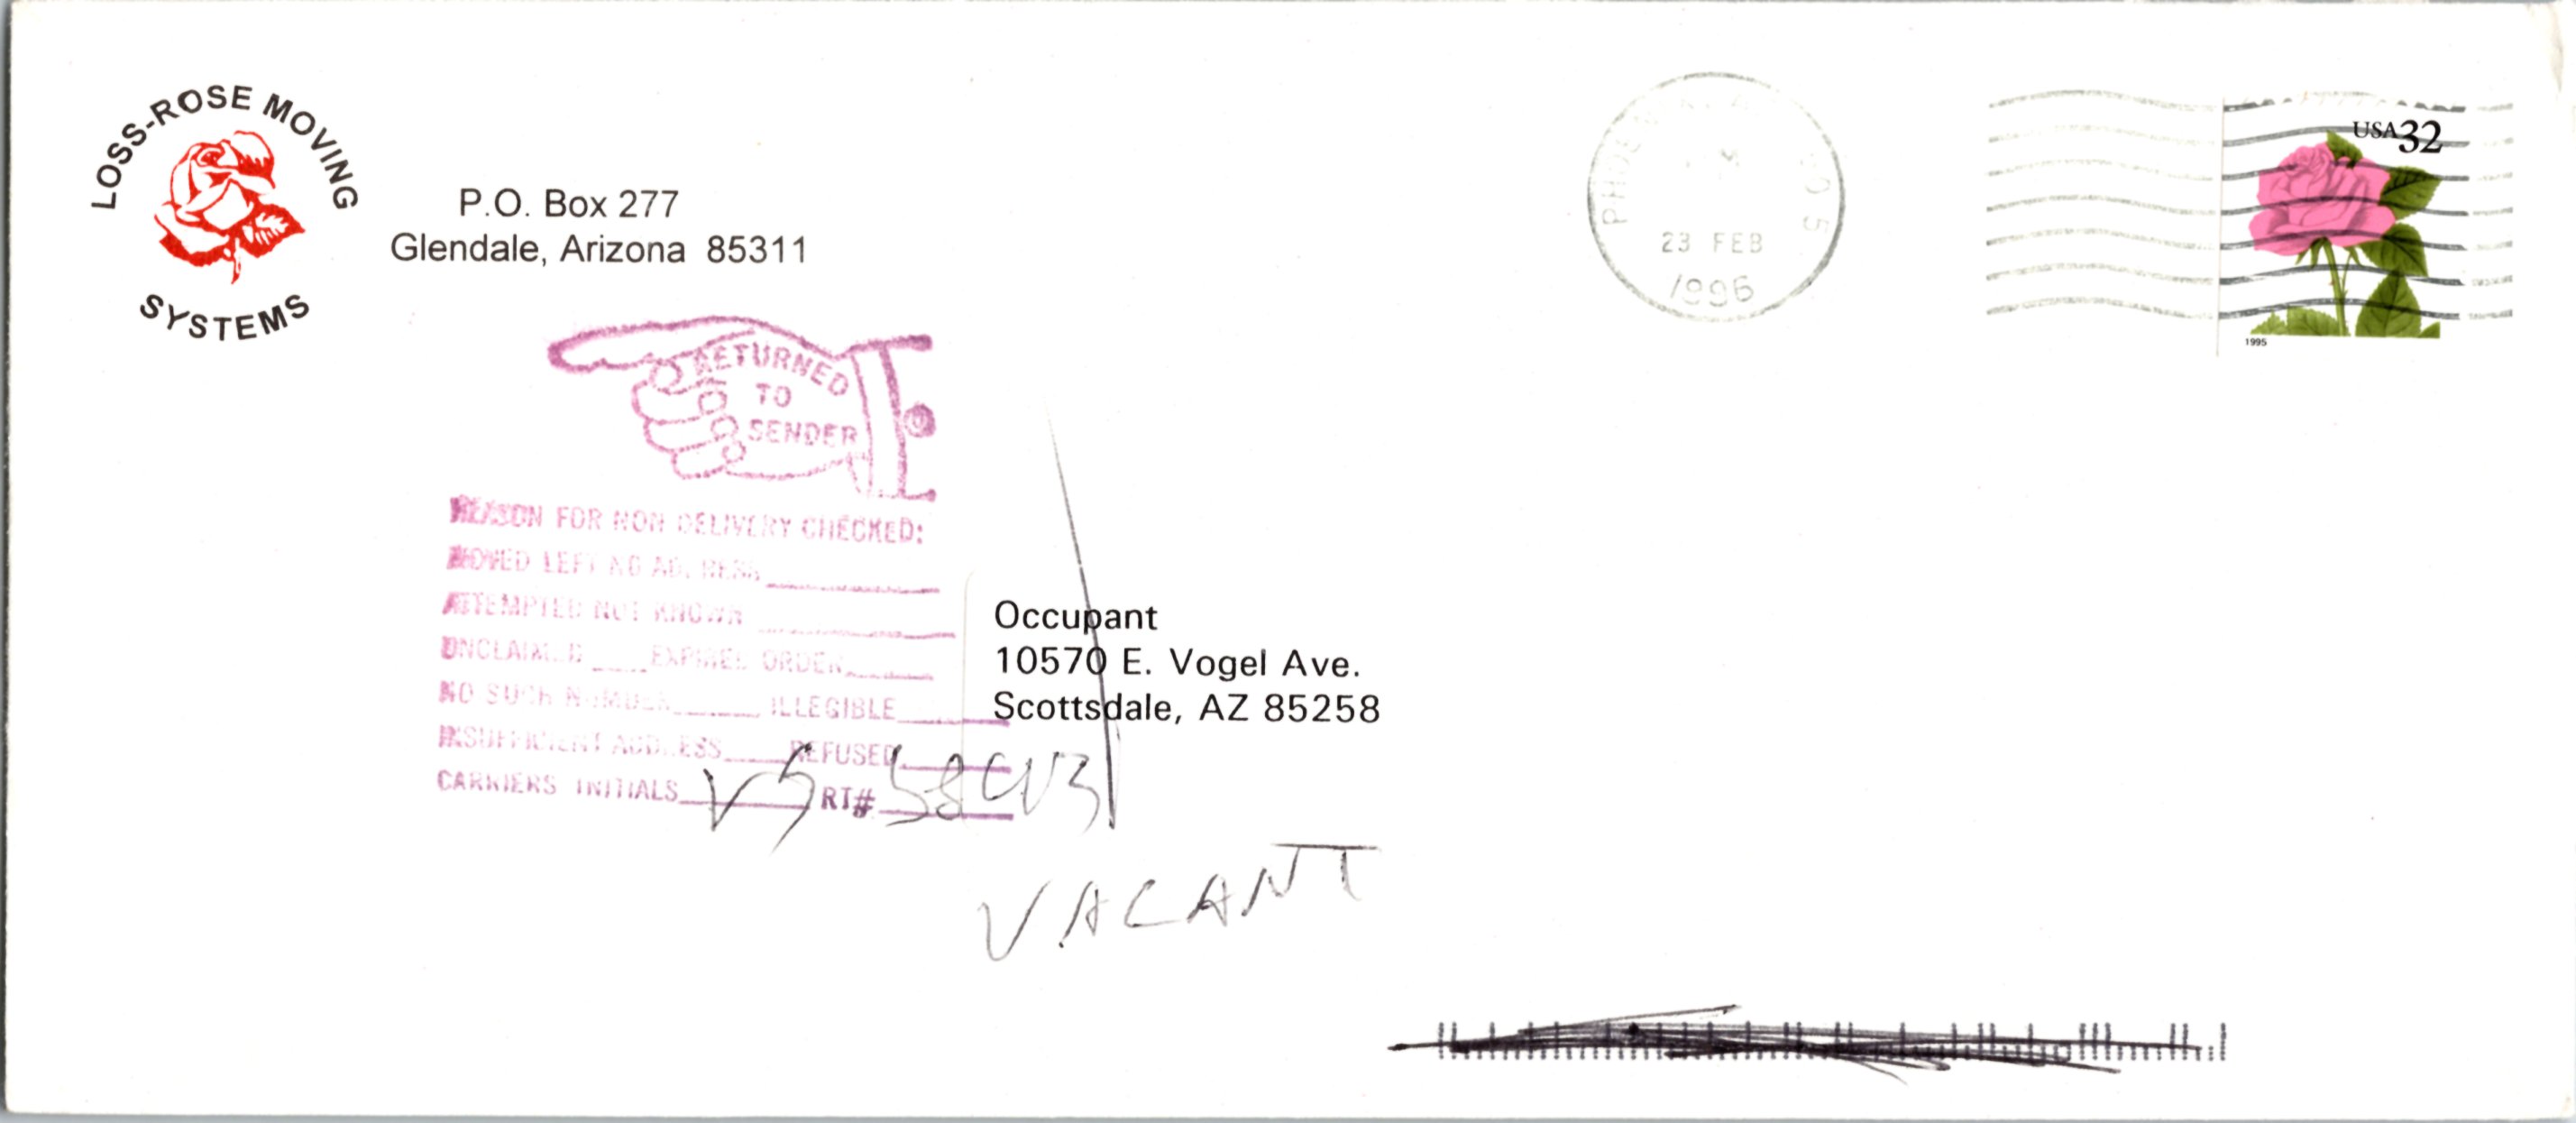 LOSS-ROSE MOVING
SYSTEMS
P.O. Box 277
Glendale, Arizona 85311
23 FEB
1996
USA 32
1995
RETURNED
TO
SENDER
REASON FOR NON DELIVERY CHECKED:
MOVED LEFT NO ADDRESS
ATTEMPTED NOT KNOWN
UNCLAIMED ____ EXPIRED ORDER
NO SUCH NUMBER ____ ILLEGIBLE
INSUFFICIENT ADDRESS ____ REFUSED
CARRIERS INITIALS VS RT#
Occupant
10570 E. Vogel Ave.
Scottsdale, AZ 85258
VACANT